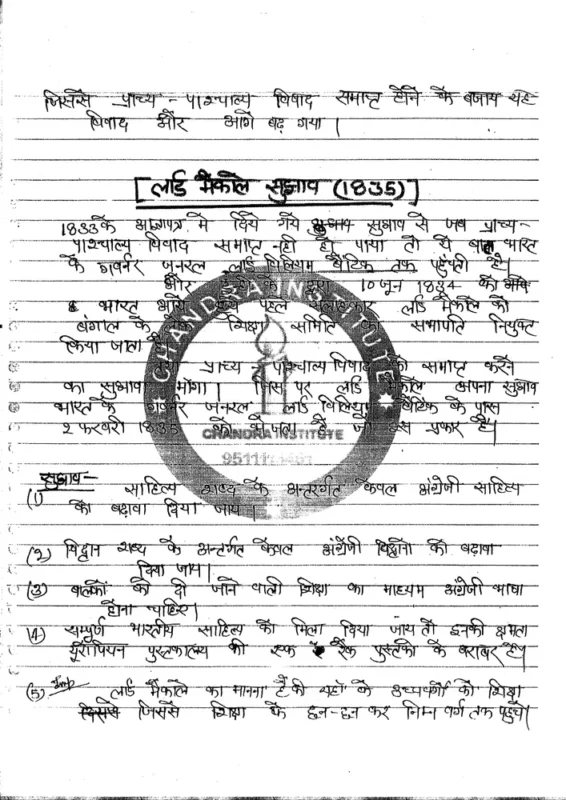 जिससे प्राच्य - पाश्चात्य विवाद समाप्त होने के बजाय यह
विवाद और आगे बढ़ गया।
[लार्ड मैकाले सुझाव (1835)]
1833 के आज्ञापत्र में दिये गये सुझाव से जब प्राच्य-
पाश्चात्य विवाद समाप्त नहीं हो पाया तो ये बात भारत
के गवर्नर जनरल लार्ड विलियम बैंटिक तक पहुँचती है।
और के द्वारा 10 जून 1834 को
भारत पहले सलाहकार लार्ड मैकाले को
बंगाल के शिक्षा समिति का सभापति नियुक्त
किया जाता है
प्राच्य - पाश्चात्य विवाद को समाप्त करने
का सुझाव माँगा। जिस पर लार्ड मैकाले अपना सुझाव
भारत के गवर्नर जनरल लार्ड विलियम बैंटिक के पास
2 फरवरी 1835 को भेजता है जो इस प्रकार है।
CHANDRA INSTITUTE
CHANDRA INSTITUTE
सुझाव -
(1) साहित्य शब्द के अन्तरर्गत केवल अंग्रेजी साहित्य
को बढ़ावा दिया जाय।
(2) विद्वान शब्द के अन्तर्गत केवल अंग्रेजी विद्वानों को बढ़ावा
दिया जाय।
(3) बालकों को दी जाने वाली शिक्षा का माध्यम अंग्रेजी भाषा
होना चाहिए।
(4) सम्पूर्ण भारतीय साहित्य को मिला दिया जाय तो इनकी क्षमता
यूरोपियन पुस्तकालय की एक रैक पुस्तकों के बराबर है।
(5) Imp लार्ड मैकाले का मानना है की यहाँ के उच्चवर्गो को शिक्षा
जिससे शिक्षा के छन-छन कर निम्न वर्ग तक पहुंचे।